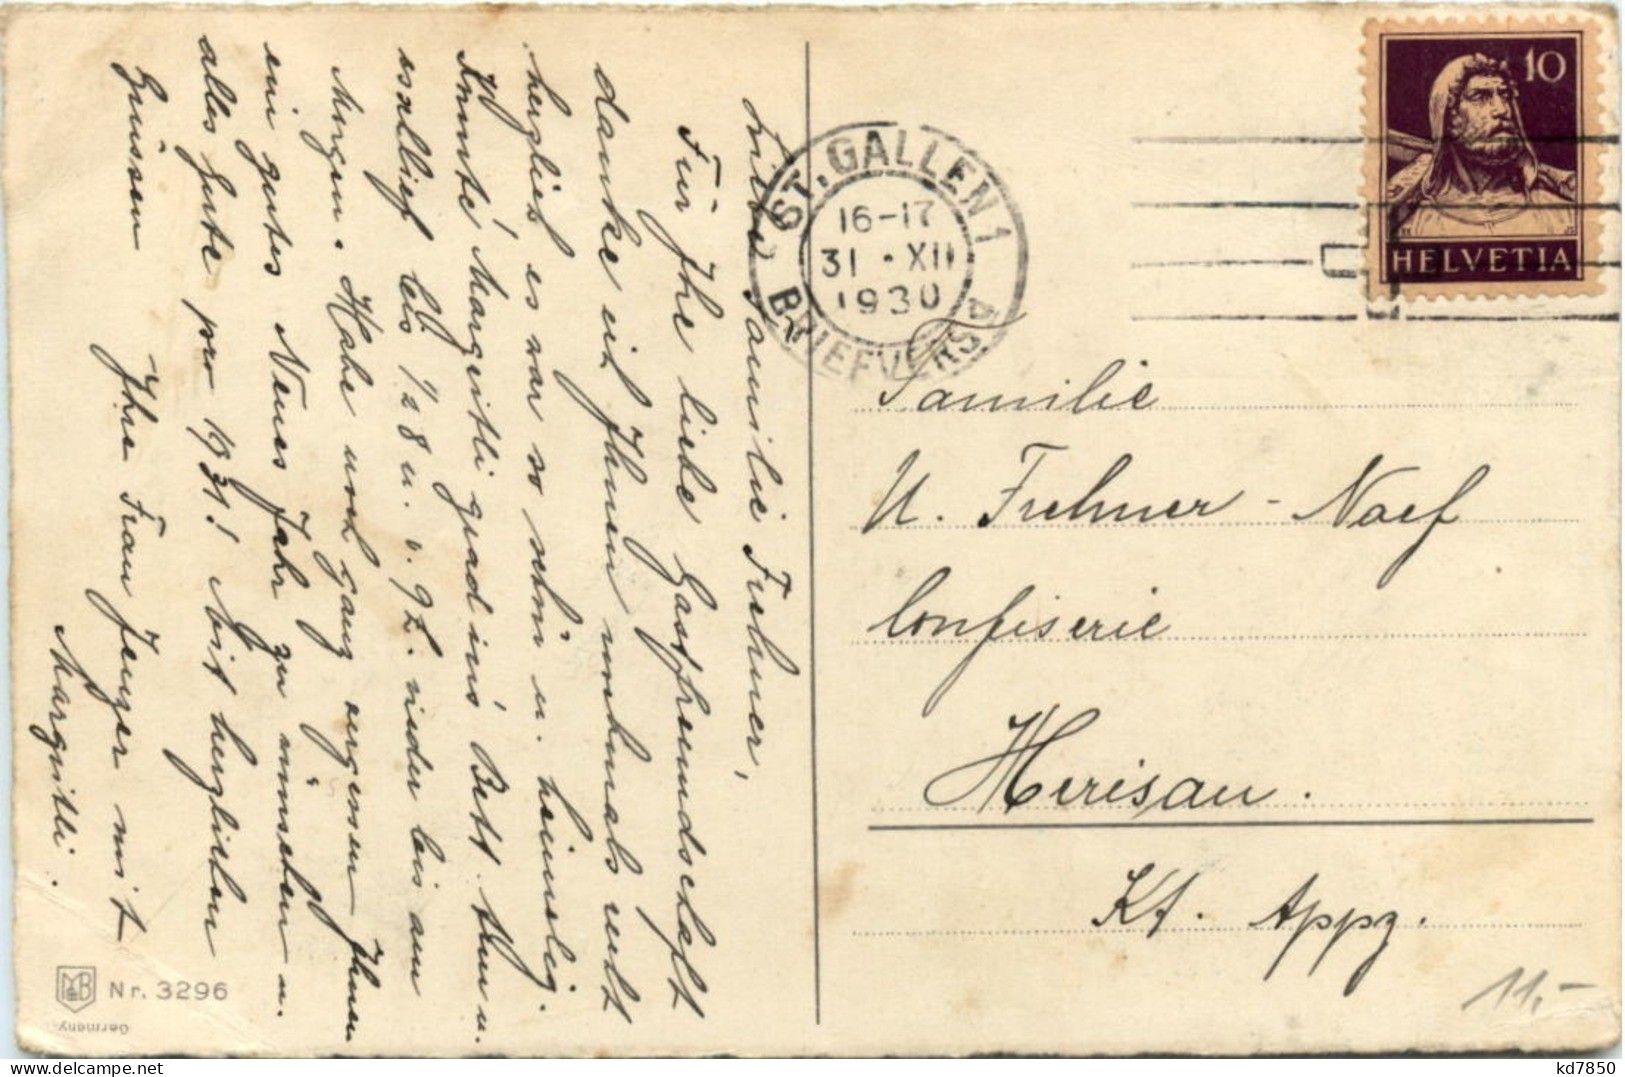 Liebe Familie Frehner,
Für Ihre liebe Gastfreundschaft
danke ich Ihnen nochmals recht
herzlich es war so schön u. heimelig.
Konnte Margritli grad ins Bett thun u.
es schlief bis 1/2 8 u. v. 9 Z. wieder bis am
Morgen. Habe noch ganz vergessen Ihnen
ein gutes Neues Jahr zu wünschen u.
alles Gute pro 1931! Mit herzlichen
Grüssen Ihre Frau Zenger mit
Margritli.
MB Nr. 3296
Germany
ST. GALLEN 1
16-17
31 · XII
1930
BRIEFVERSA
10
HELVETIA
Familie
U. Frehner - Naef
Confiserie
Herisau.
Kt. Appz.
11.-
kd7850